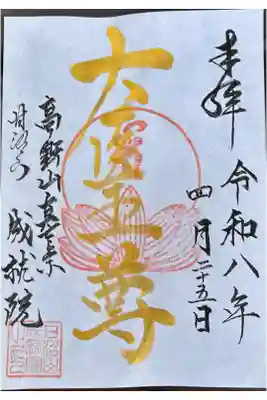 奉拝
令和八年
四月二十五日
大医王尊
高野山真言宗
成就院